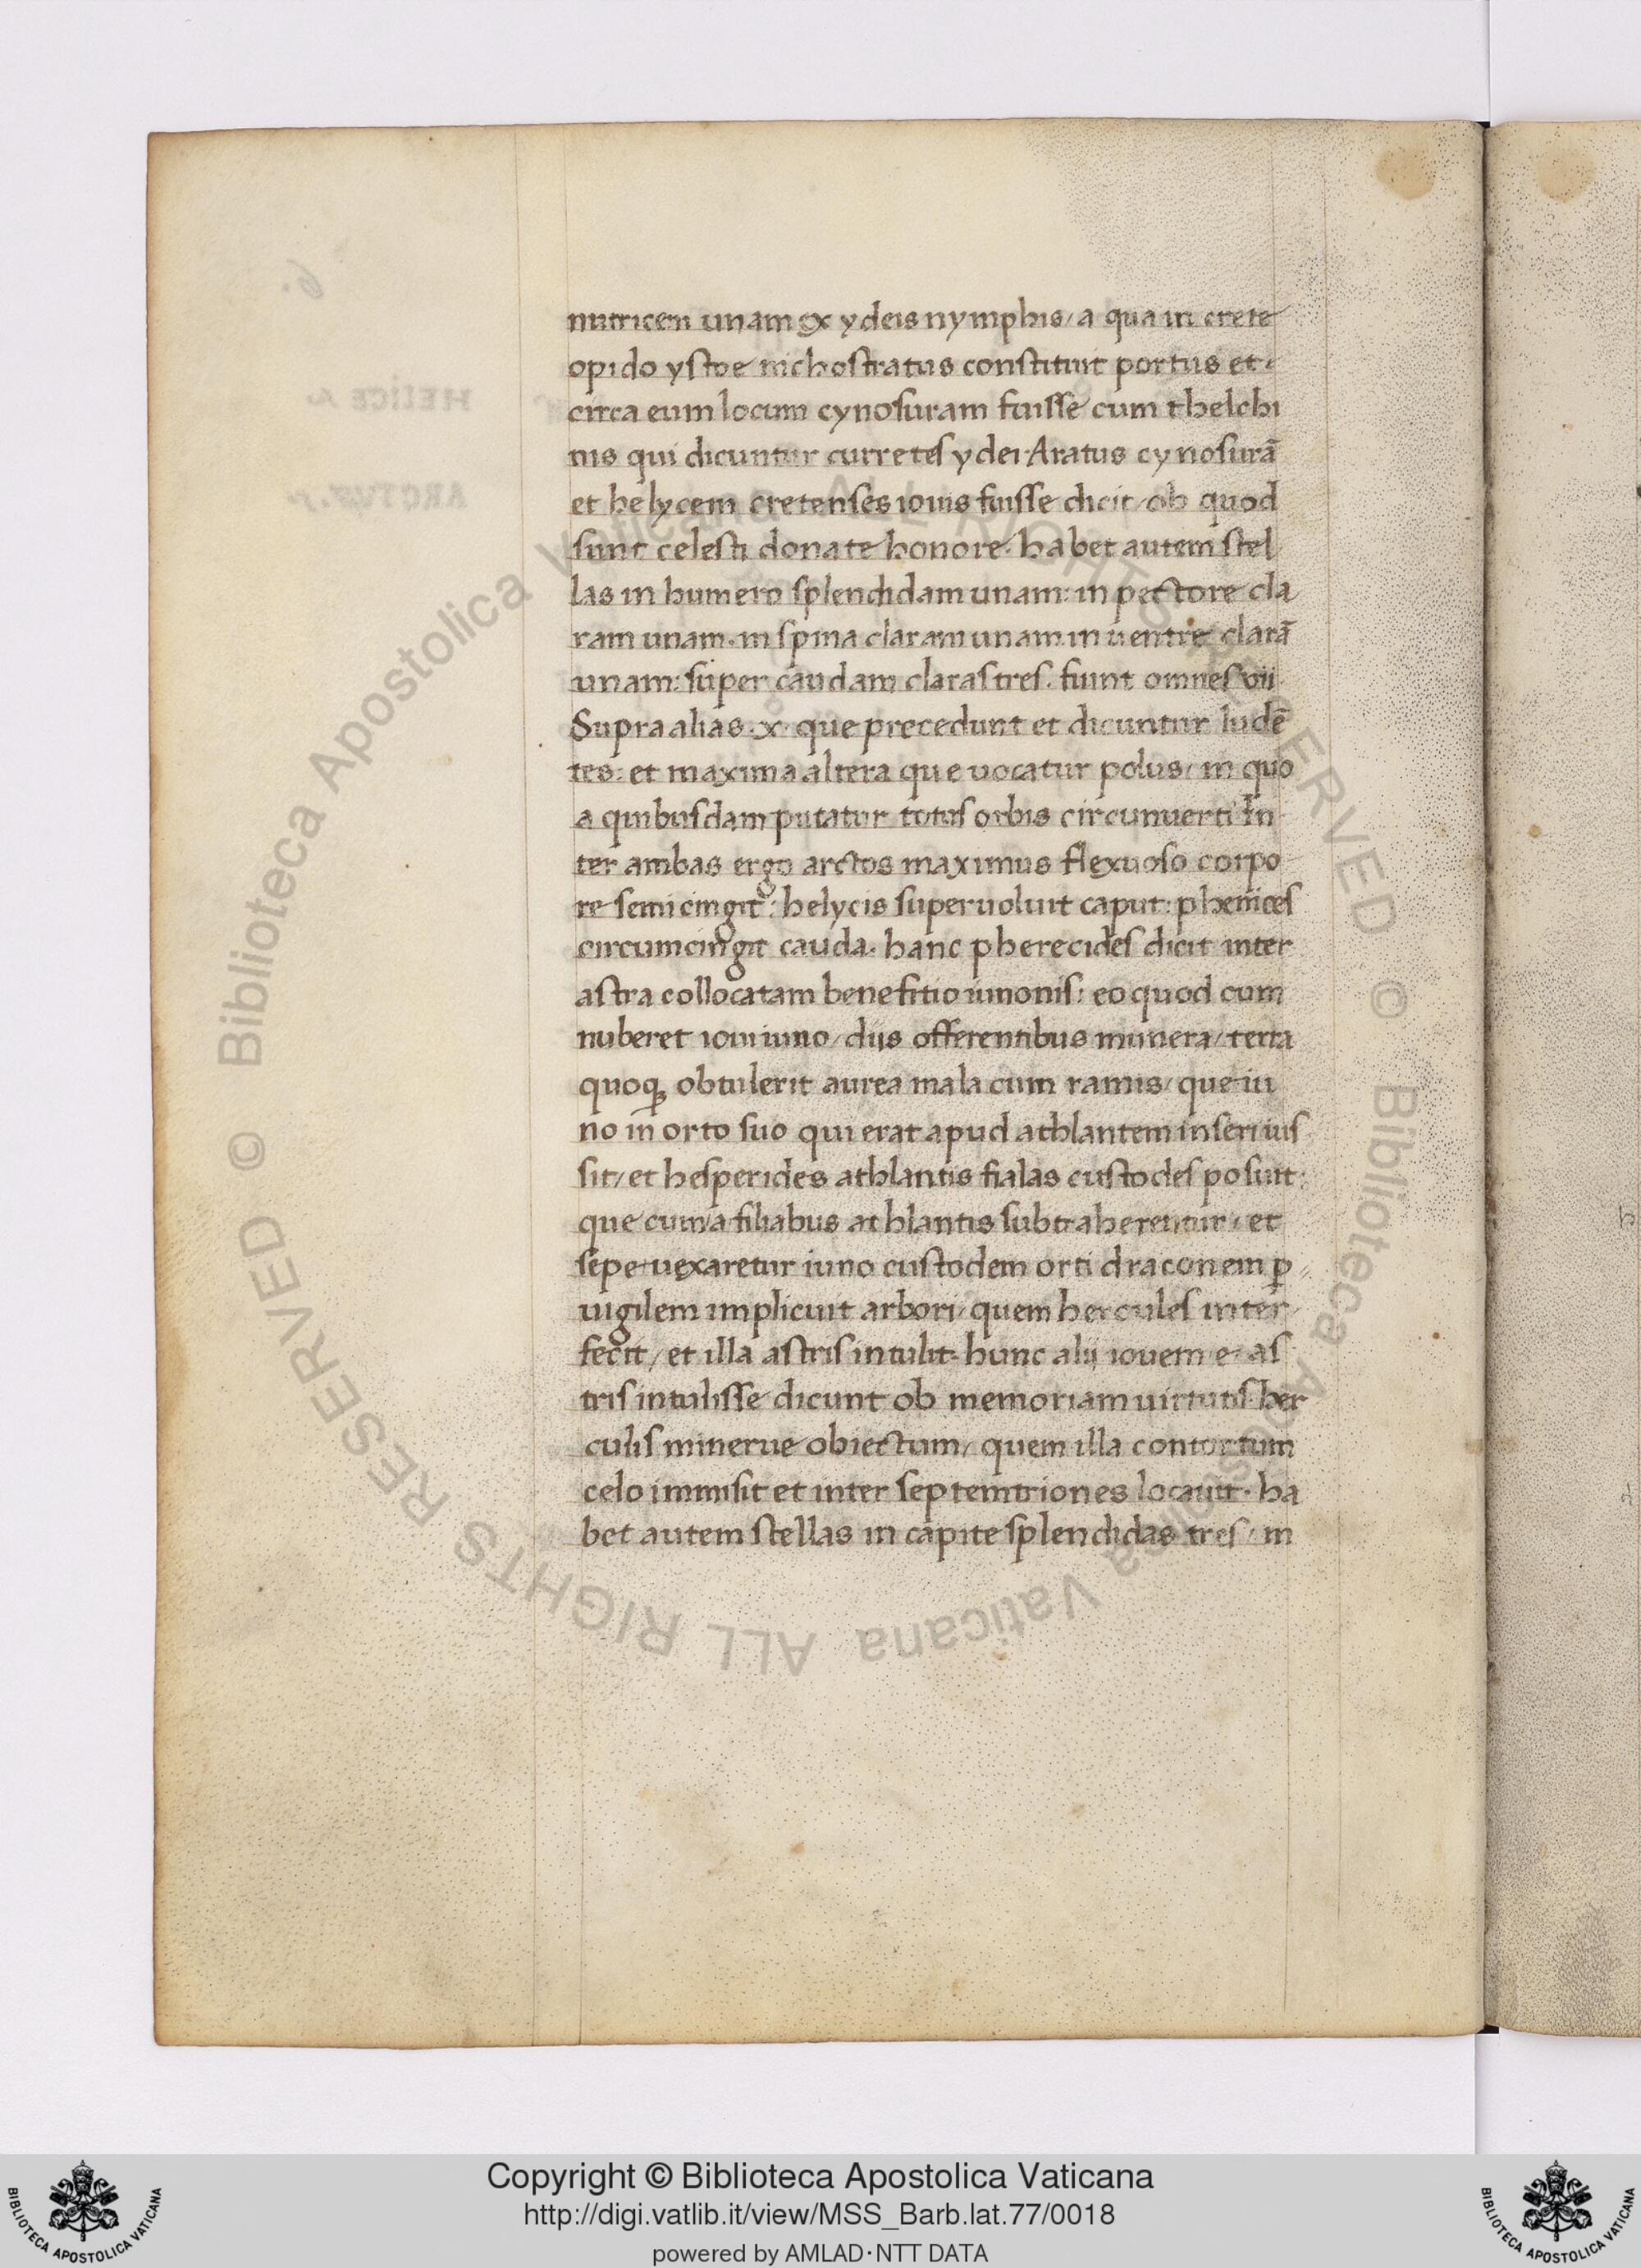 nutricem unam ex ydeis nymphis/ a qua in crete
opido ystoe nichostratus constituit portus et
circa eum locum cynosuram fuisse cum thelchi
nis qui dicuntur curretes ydei Aratus cynosurā
et helycem cretenses iouis fuisse dicit/ ob quod
sunt celesti donate honore. habet autem stel
las in humero splendidam unam: in pectore cla
ram unam. in spina claram unam in uentre clarā
unam: super caudam claras tres. fiunt omnes vii
Supra alias .x. que precedunt et dicuntur ludē
tes: et maxima altera que uocatur polus/ in quo
a quibusdam putatur totus orbis circumuerti In
ter ambas ergo arctos maximus flexuoso corpo
re semicingit: helycis superuoluit caput: phenices
circumcingit cauda. hanc pherecides dicit inter
astra collocatam benefitio iunonis: eo quod cum
nuberet ioui iuno/ diis offerentibus munera/ terra
quoqꝫ obtulerit aurea mala cum ramis/ que iu
no in orto suo qui erat apud athlantem inseri ius
sit/ et hesperides athlantis fialas custodes posuit:
que cum a filiabus athlantis subtraherentur/ et
sepe uexaretur iuno custodem orti draconem p̱
uigilem implicuit arbori/ quem hercules inter
fecit/ et illa astris intulit. hunc alij iouem e as
tris intulisse dicunt ob memoriam uirtutis her
culis minerue obiectum/ quem illa contortum
celo immisit et inter septemtriones locauit. ha
bet autem stellas in capite splendidas tres/ in
© Biblioteca Apostolica Vaticana ALL RIGHTS RESERVED © Biblioteca Apostolica Vaticana ALL RIGHTS RESERVED
Copyright © Biblioteca Apostolica Vaticana
http://digi.vatlib.it/view/MSS_Barb.lat.77/0018
powered by AMLAD·NTT DATA
BIBLIOTECA APOSTOLICA VATICANA
BIBLIOTECA APOSTOLICA VATICANA